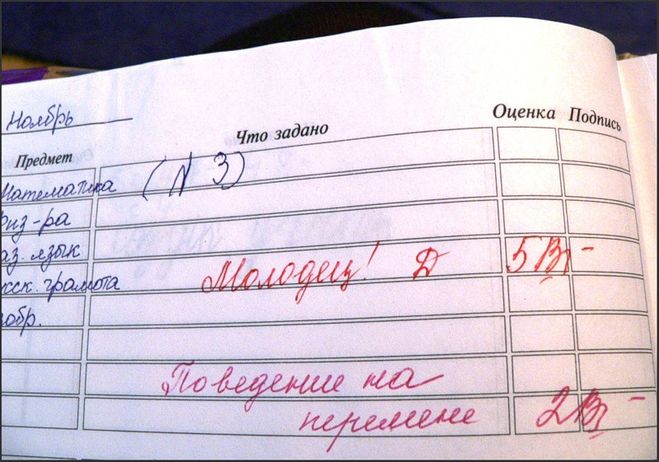 Ноябрь
Что задано
Оценка
Подпись
Предмет
Математика
(N 3)
физ-ра
аз. язык
Молодец! Д
5
сск. грамота
зобр.
Поведение на
перемене
2